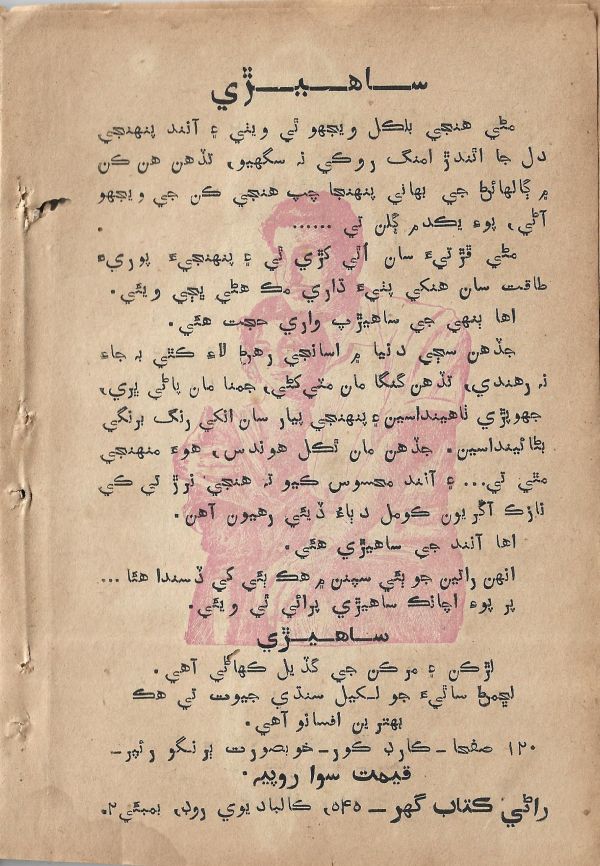 ساهيڙي
مٺي هنجي بلڪل ويجھو ٿي ويئي ۽ آنند پنهنجي
دل جا اٿندڙ امنگ روڪي نہ سگھيو، تڏهن هن ڪن
۾ ڳالهائڻ جي بهاني پنهنجا چپ هنجي ڪن جي ويجھو
آڻي، پوءِ يڪدم ڳلن تي ......
مٺي ڦڙتيءَ سان اُٿي کڙي ٿي ۽ پنهنجيءَ پوريءَ
طاقت سان هنکي پٺيءَ ڌاري مڪ هڻي ڀڄي ويئي.
اها ٻنهي جي ساهيڙپ واري حجت هئي.
جڏهن سڄي دنيا ۾ اسانجي رهڻ لاءِ ڪٿي بہ جاءِ
نہ رهندي، تڏهن گنگا مان مٽي کڻي، جمنا مان پاڻي ڀري،
جھوپڙي ٺاهينداسين ۽ پنهنجي پيار سان انکي رنگ برنگي
بڻائينداسين. جڏهن مان ٿڪل هوندس، هوءَ منهنجي
مٿي تي... ۽ آنند محسوس ڪيو تہ هنجي نرڙ تي ڪي
نازڪ آڱريون ڪومل دٻاءُ ڏيئي رهيون آهن.
اها آنند جي ساهيڙي هئي.
انهن راتين جو ٻئي سپنن ۾ هڪ ٻئي کي ڏسندا هئا...
پر پوءِ اچانڪ ساهيڙي پرائي ٿي ويئي.
ساهيڙي
لڙڪن ۽ مرڪن جي گڏيل ڪهاڻي آهي.
لڇمڻ ساٿيءَ جو لکيل سنڌي جيوت تي هڪ
بهترين افسانو آهي.
١٢٠ صفحا ـ ڪارڊ ڪور ـ خوبصورت ٻرنگو رئپر ـ
قيمت سوا روپيہ.
راڻي ڪتاب گهر ـ ٥٤٥، ڪالباديوي روڊ، بمبئي ٢.